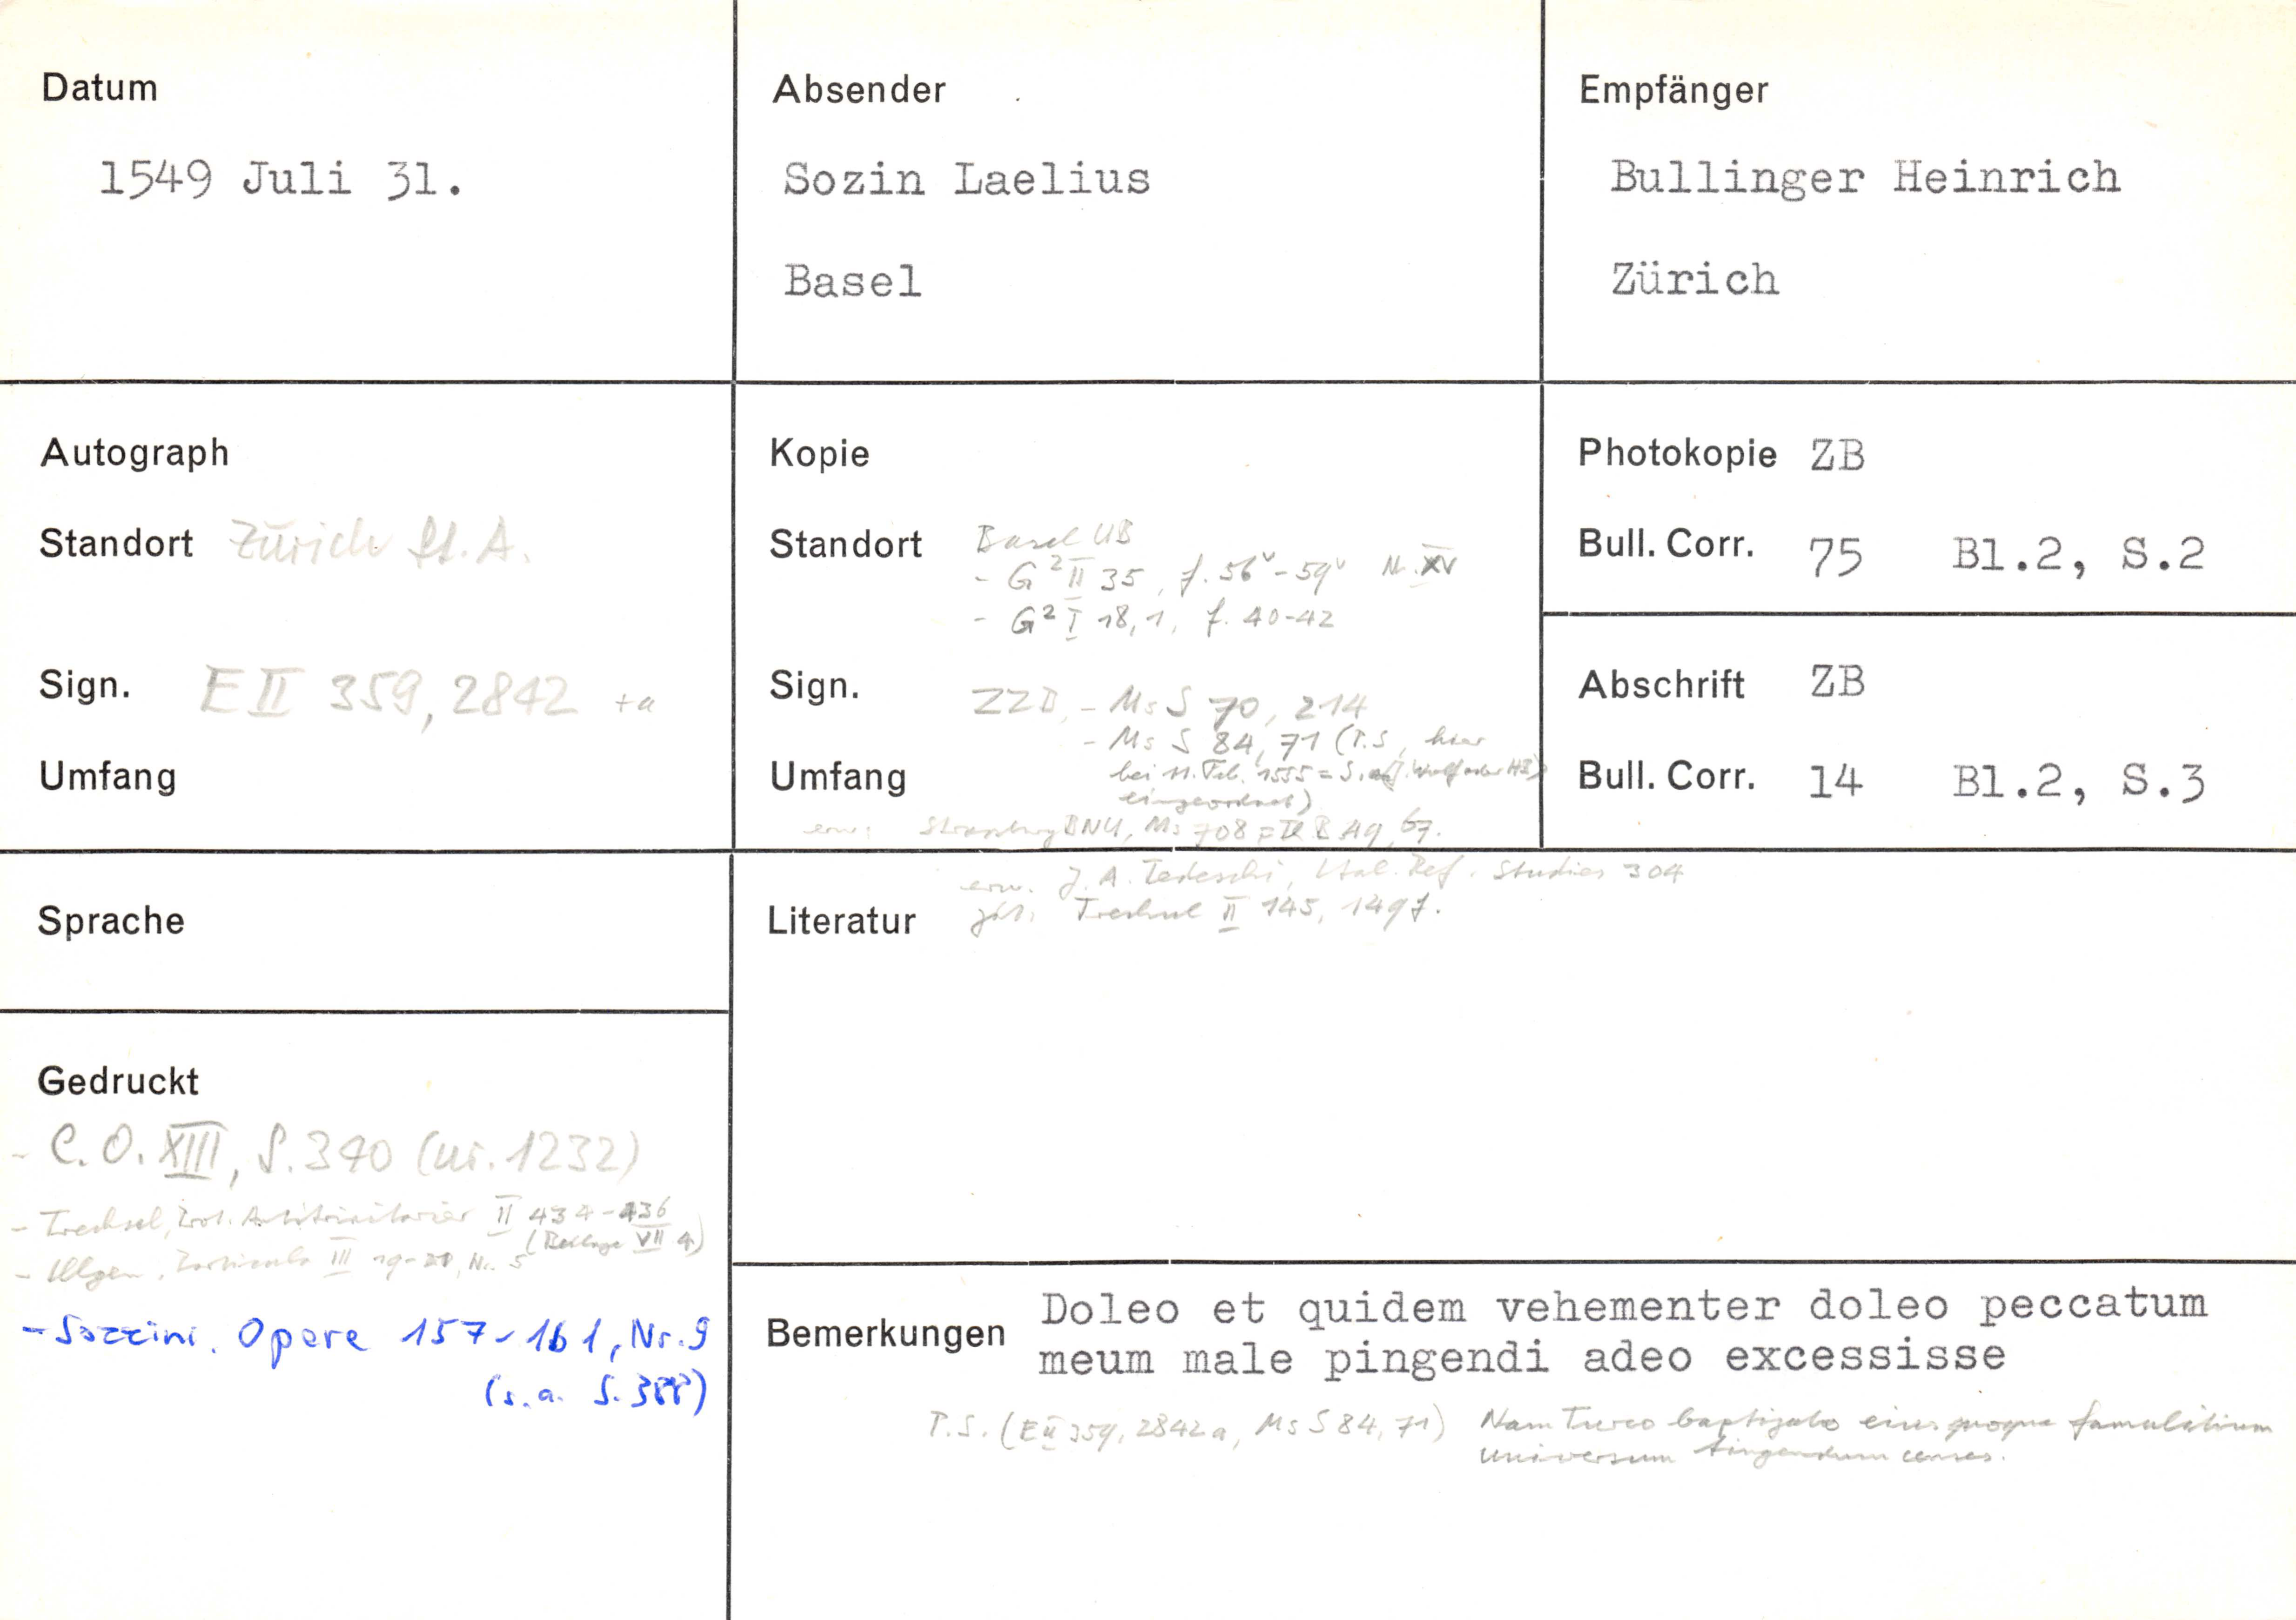 Datum
1549 Juli 31.
Absender
Sozin Laelius
Basel
Empfänger
Bullinger Heinrich
Zürich
Autograph
Standort Zürich St. A.
Sign. E II 359, 2842 +a
Umfang
Kopie
Standort Basel UB
- G² II 35, f. 56v-59v N. XV
- G² I 18,1, f. 40-42
Sign. ZZB, - Ms S 70, 214
- Ms S 84, 71 (P.S., hier
Umfang bei 11. Feb. 1555 = S. an J. Wolf oder HB
eingeordnet)
erw: Strassburg BNU, Ms 708 = 67.
Photokopie ZB
Bull. Corr. 75 Bl.2, S.2
Abschrift ZB
Bull. Corr. 14 Bl.2, S.3
Sprache
erw. J. A. Tedeschi, Ital. Ref. Studies 304
Literatur zit: Trechsel II 145, 149f.
Gedruckt
- C. O. XIII, S. 340 (nr. 1232)
- Trechsel, Prot. Antitrinitarier II 434-436
(Beilage VII 4)
- Illgen, Particula III 19-21, Nr. 5
- Sozzini, Opere 157-161, Nr. 9
(s.a. S. 388)
Bemerkungen Doleo et quidem vehementer doleo peccatum
meum male pingendi adeo excessisse
P.S. (E II 359, 2842a, Ms S 84, 71) Nam Turco baptizato eius quoque famulitium
universum tingendum censes.